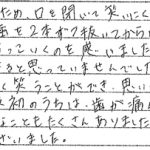 ため、口を開いて笑いにく
歯を2本ずつ抜いてから
っていくのを感じました
ると思っていませんでし
く笑うことができ、思い
初のうちは、歯が痛ん
なこともたくさんありました
ざいました。